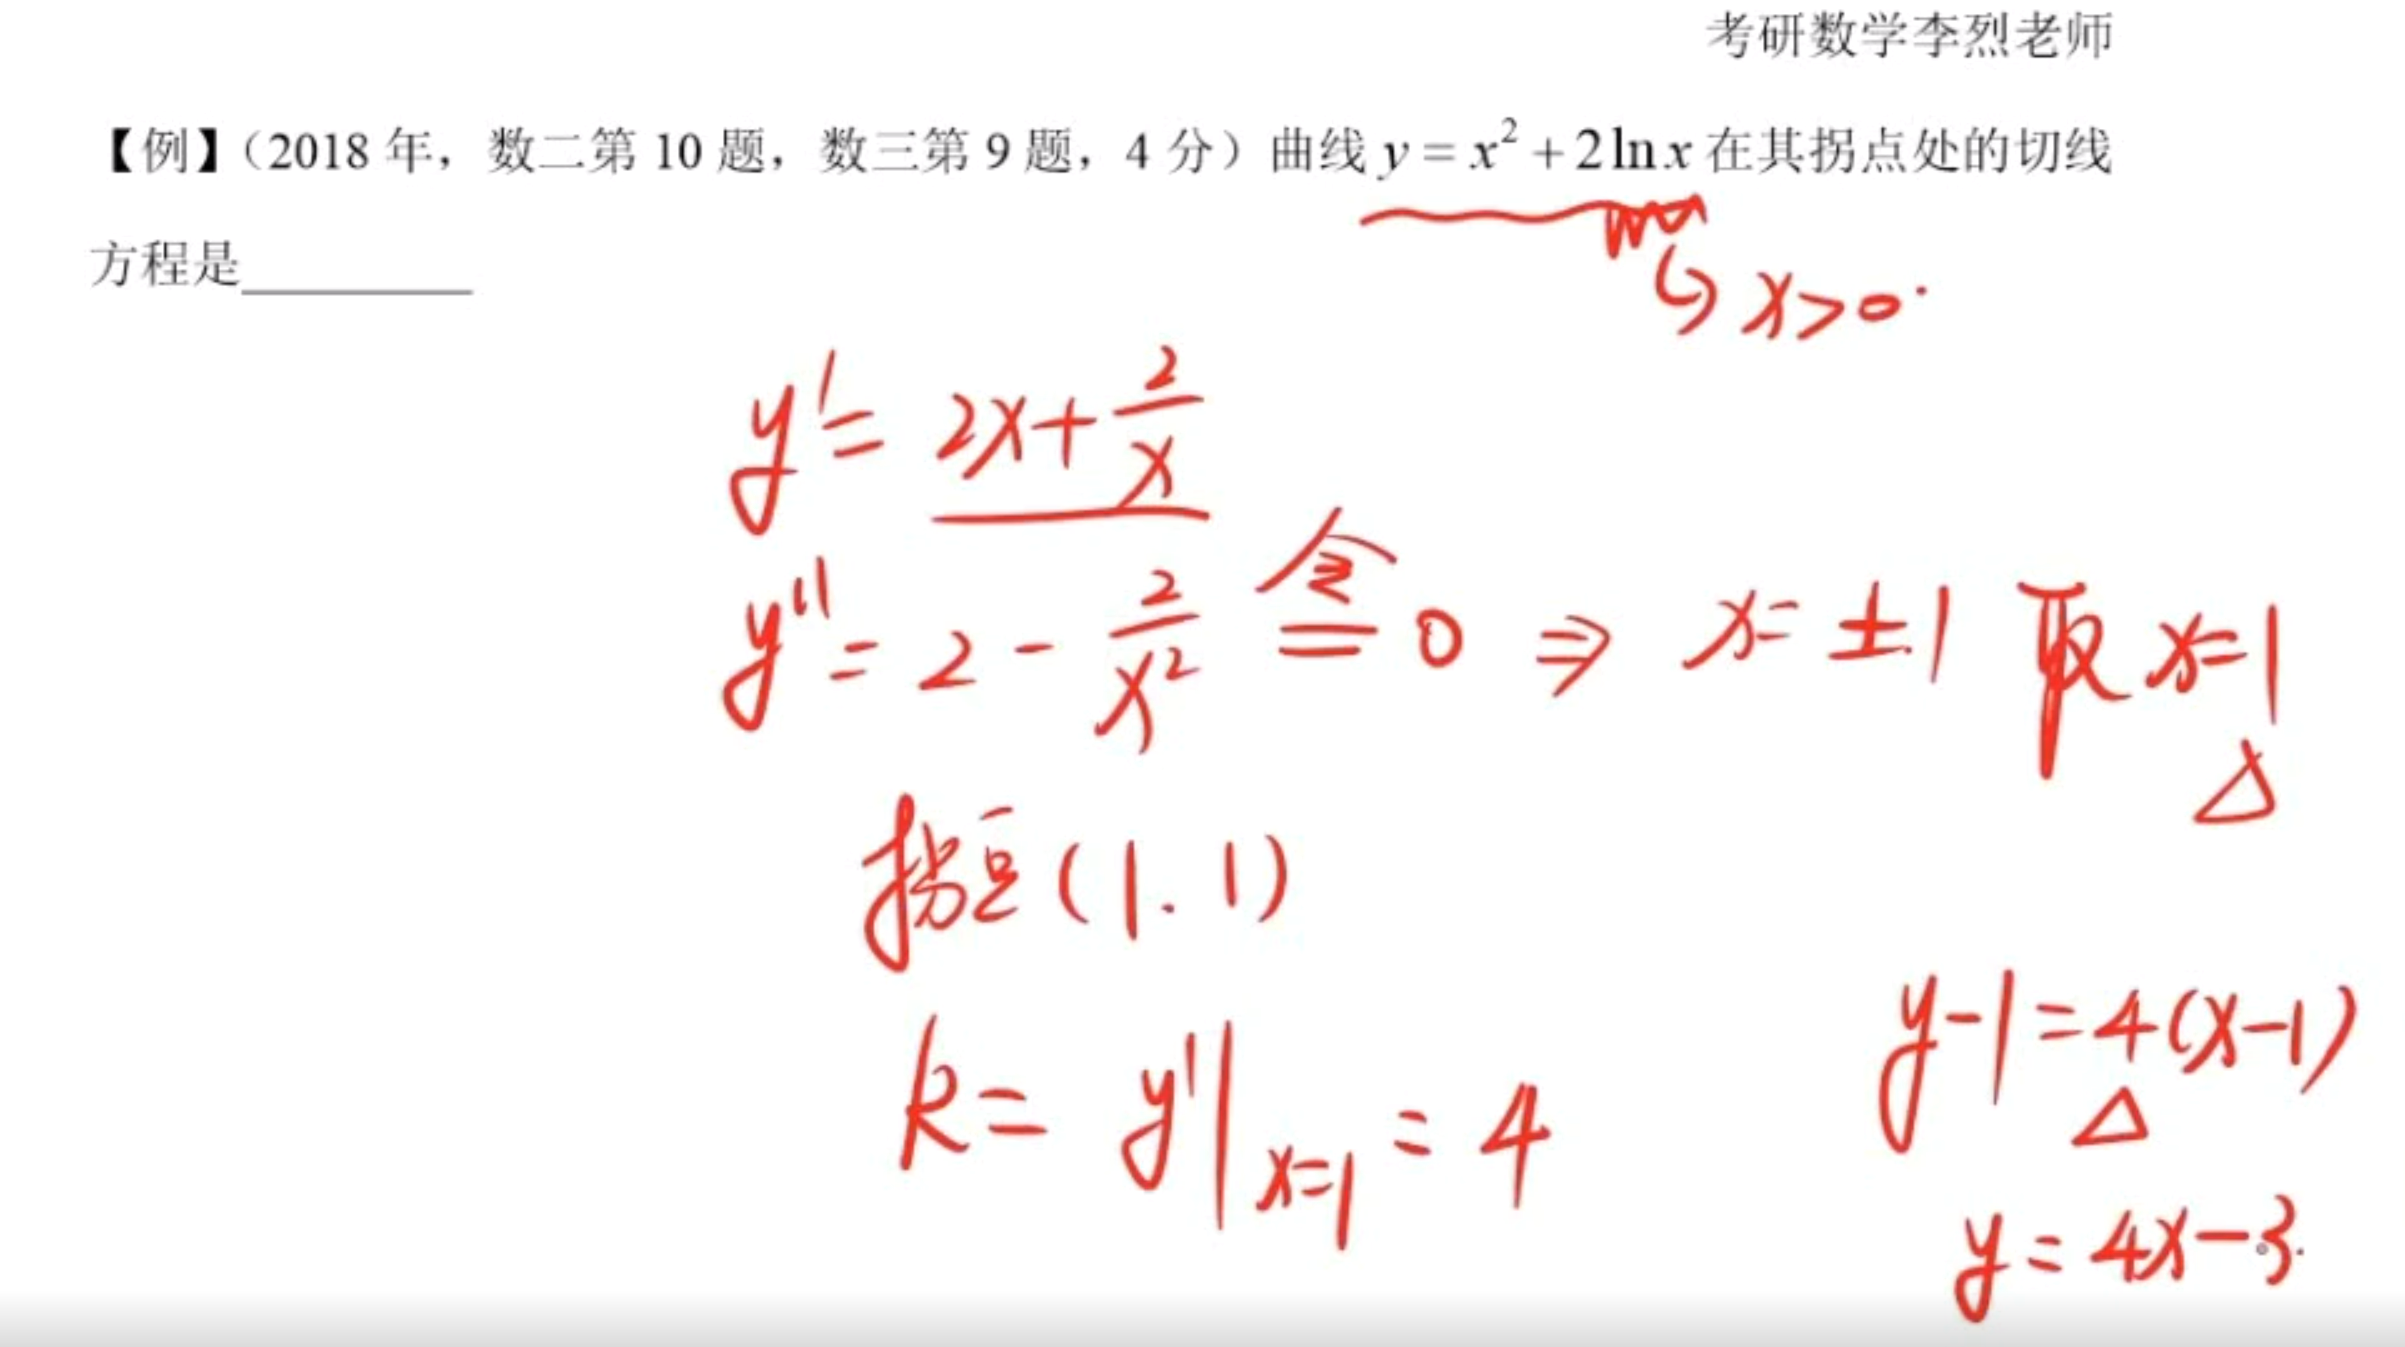 考研数学李烈老师
【例】（2018 年，数二第 10 题，数三第 9 题，4 分）曲线 y = x² + 2 ln x 在其拐点处的切线
方程是_________
x>0.
y' = 2x + 2/x
y'' = 2 - 2/x² 令= 0 ⇒ x = ±1 取 x=1
拐点 (1. 1)
k = y'|x=1 = 4
y-1=4(x-1)
y = 4x-3.